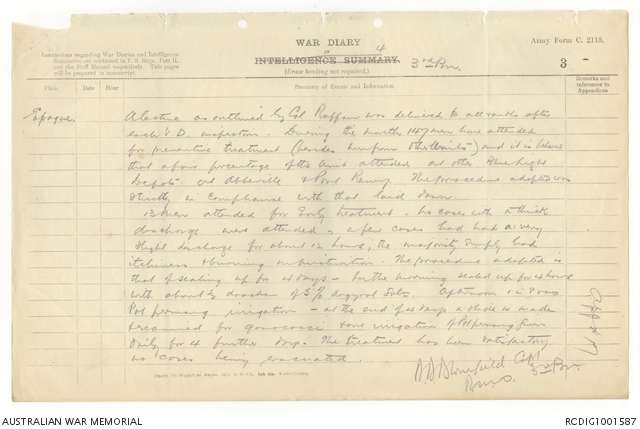 WAR DIARY
or 4
INTELLIGENCE SUMMARY.
(Erase heading not required.)
3rd Bn.
Army Form C. 2118.
3 -
Instructions regarding War Diaries and Intelligence
Summaries are contained in F. S. Regs., Part II.
and the Staff Manual respectively. Title pages
will be prepared in manuscript.
Place Date Hour Summary of Events and Information Remarks and references to Appendices
A lecture as outlined by Col was delivered to all ranks after
each V.D. inspection. During the month 147 men have attended
for preventive treatment (besides other Units) and it is
that a fair percentage of the Unit attended at other Blue Light
Depots at Abbeville & Pont Remy. The procedure adopted was
strictly in compliance with that laid down.
13 men attended for Early treatment. No cases with a thick
discharge were attended, a few cases had had a very
slight discharge for about 12 hours, the majority simply had
itchiness & burning on micturition. The procedure adopted is
that of sealing up for 4 days - in the morning sealed up for 4 hours
with about of 5% Afternoon
Pot permang irrigation - at the end of 4 days a slide is made
& examined for gonococci irrigation of Pot permang given
daily for 4 further days. The treatment has been satisfactory
no cases being evacuated.
Capt
3rd Bn.
AUSTRALIAN WAR MEMORIAL
RCDIG1001587